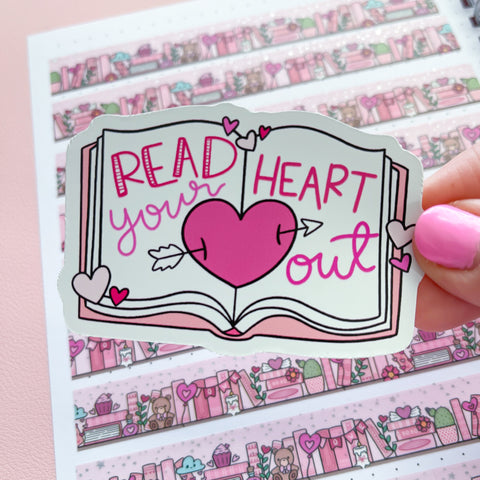 READ
your
HEART
out